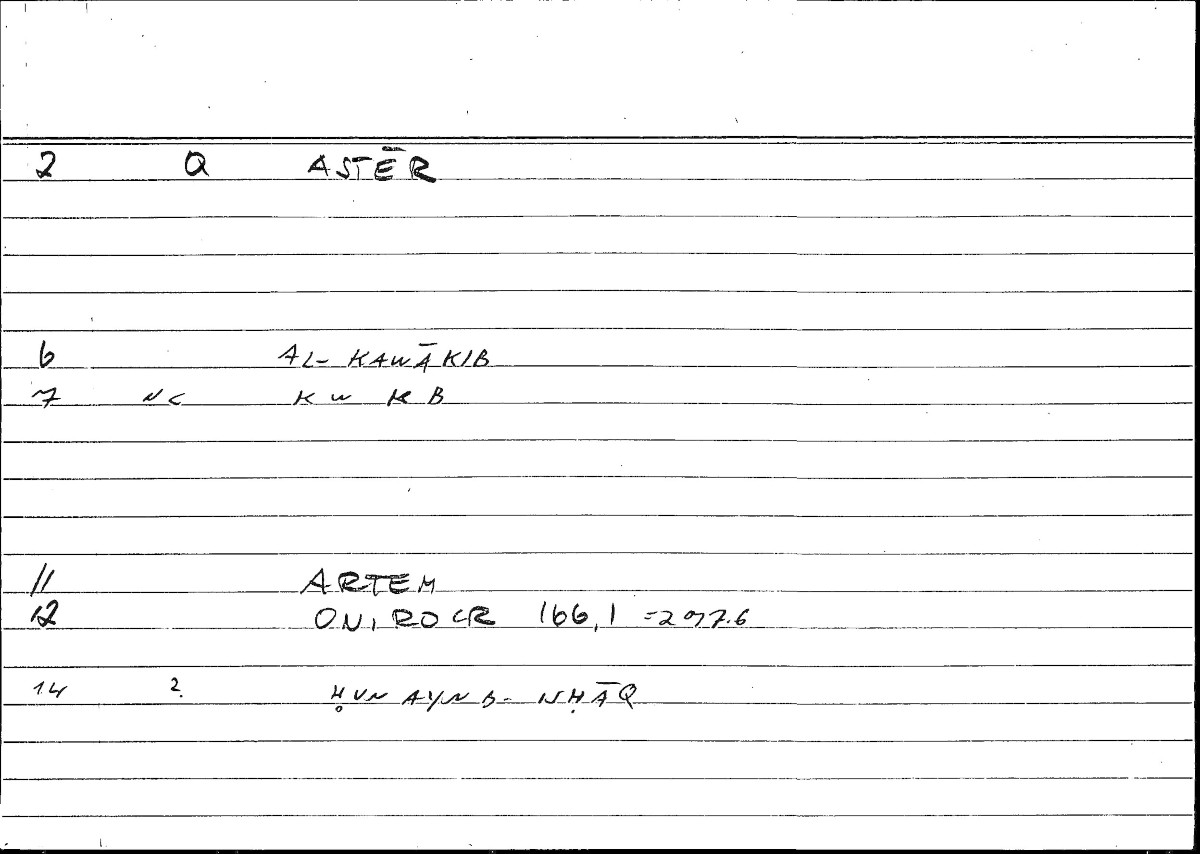 2 Q ASTĒR
6 AL-KAWĀKIB
7 NC KW KB
11 ARTEM
12 ONIROCR 166,1 =297.6
14 2. ḤUNAYN B- ISḤĀQ